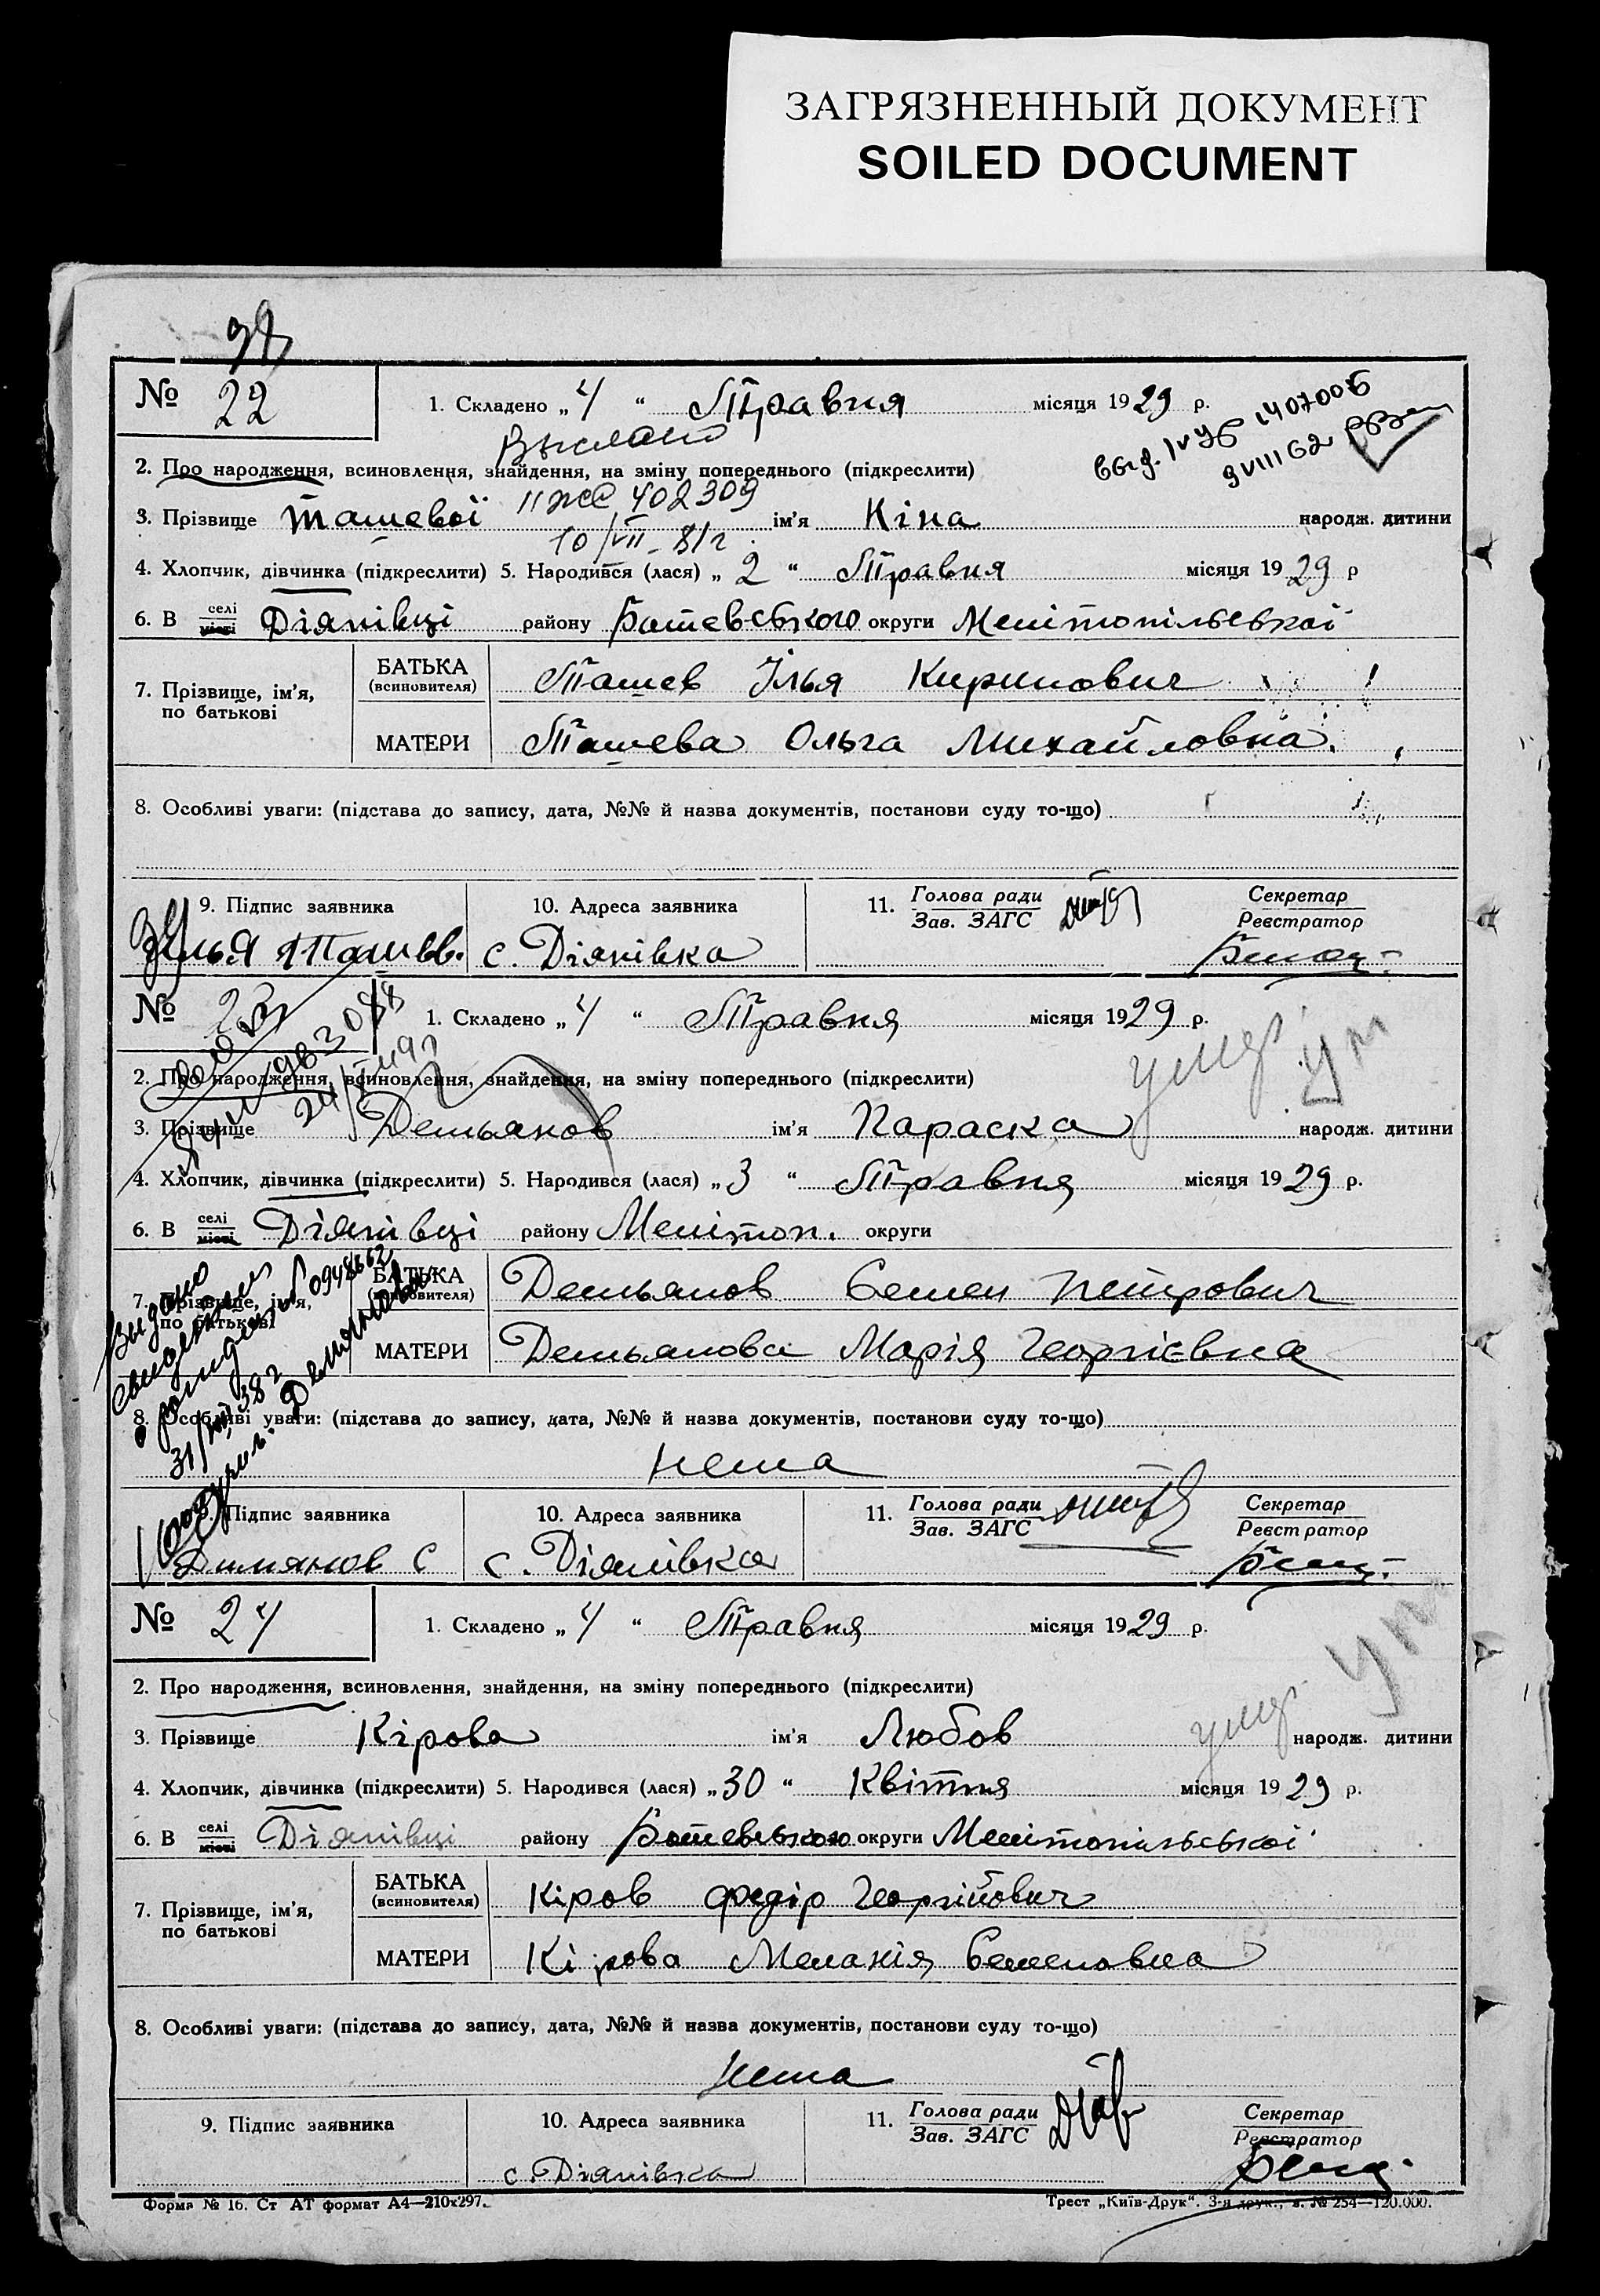 ЗАГРЯЗНЕННЫЙ ДОКУМЕНТ
SOILED DOCUMENT
№ 22
1. Складено „4“ Травня місяця 1929 р.
Выслано
2. Про народження, всиновлення, знайдення, на зміну попереднього (підкреслити)
3. Прізвище Ташевої ім'я Кіна народж. дитини
402309
4. Хлопчик, дівчинка (підкреслити) 5. Народився (лася) „2“ Травня місяця 1929 р
6. В селі місті Діянівці району Ботевського округи Мелітопільської
7. Прізвище, ім'я, по батькові
БАТЬКА (всиновителя) Ташев Ілья Кирилович
МАТЕРИ Ташева Ольга Михайловна.
8. Особливі уваги: (підстава до запису, дата, №№ й назва документів, постанови суду то-що)
9. Підпис заявника
10. Адреса заявника
11. Голова ради Зав. ЗАГС
Секретар Реєстратор
Илья Ташев. с. Діянівка
№ 23
1. Складено „4“ Травня місяця 1929 р.
2. Про народження, всиновлення, знайдення, на зміну попереднього (підкреслити)
3. Прізвище Демьянов ім'я Параска народж. дитини
4. Хлопчик, дівчинка (підкреслити) 5. Народився (лася) „3“ Травня місяця 1929 р.
6. В селі місті Діянівці району Мелітоп. округи
7. Прізвище, ім'я, по батькові
БАТЬКА (всиновителя) Демьянов Семен Петрович
МАТЕРИ Демьянова Марія Георгієвна
Выдано
0948662
8. Особливі уваги: (підстава до запису, дата, №№ й назва документів, постанови суду то-що)
нема
9. Підпис заявника
10. Адреса заявника
11. Голова ради Зав. ЗАГС
Секретар Реєстратор
Димянов С с. Діянівка
№ 24
1. Складено „4“ Травня місяця 1929 р.
2. Про народження, всиновлення, знайдення, на зміну попереднього (підкреслити)
3. Прізвище Кірова ім'я Любов народж. дитини
4. Хлопчик, дівчинка (підкреслити) 5. Народився (лася) „30“ Квітня місяця 1929 р.
6. В селі місті Діянівці району Ботевського округи Мелітопільської
7. Прізвище, ім'я, по батькові
БАТЬКА (всиновителя) Кіров Федір Георгійович
МАТЕРИ Кірова Меланія Семеновна
8. Особливі уваги: (підстава до запису, дата, №№ й назва документів, постанови суду то-що)
нема
9. Підпис заявника
10. Адреса заявника
11. Голова ради Зав. ЗАГС
Секретар Реєстратор
с. Діянівка
Форма № 16. Ст АТ формат А4—210х297.
Трест „Київ-Друк“. 3-я друк., з. № 254—120.000.